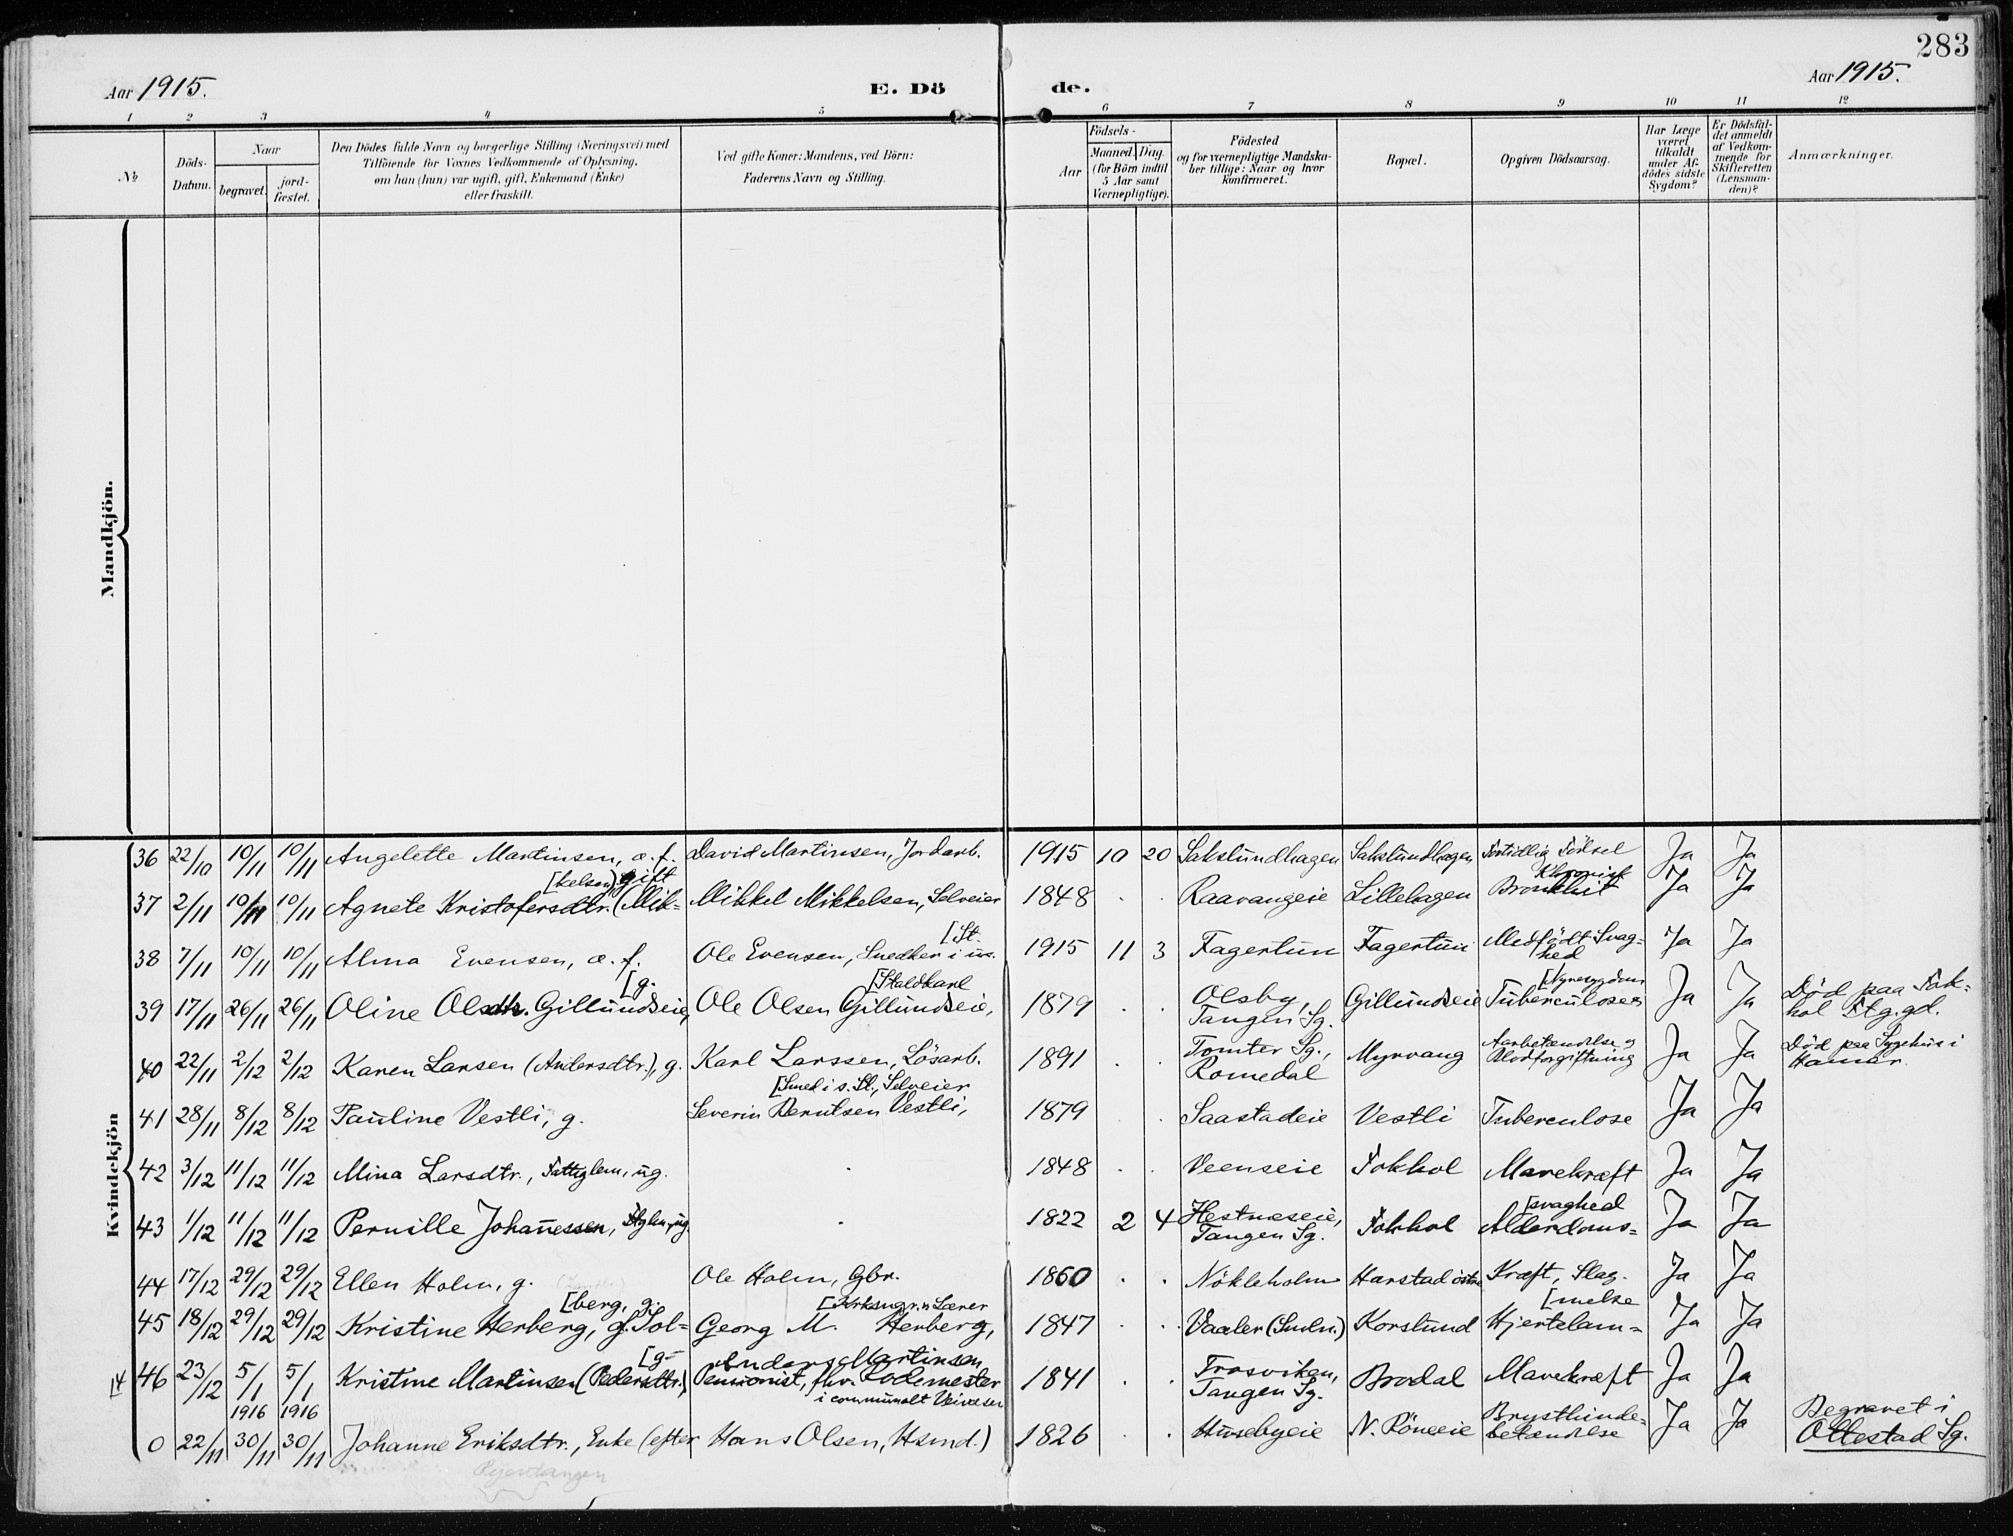 283
Aar 1915.
E. Dö
de.
Aar 1915.
1 2 3 4 5 6 7 8 9 10 11 12
No
Döds-Datum.
Naar
begravet.
jord-fæstet.
Den Dödes fulde Navn og borgerlige Stilling (Næringsvei) med
Tilföiende for Voxnes Vedkommende af Oplysning,
om han (hun) var ugift, gift, Enkemand (Enke)
eller fraskilt.
Ved gifte Koner: Mandens, ved Börn:
Faderens Navn og Stilling.
Födsels-
Aar
Maaned. Dag.
(for Börn indtil
5 Aar samt
Værnepligtige).
Födested
og for værnepligtige Mandska-
ber tillige: Naar og hvor
konfirmeret.
Bopæl.
Opgiven Dödsaarsag.
Har Læge
været
tilkaldt
under Af-
dödes sidste
Sygdom?
Er Dödsfal-
det anmeldt
af Vedkom-
mende for
Skifteretten
(Lensman-
den)?
Anmærkninger.
Mandkjön.
Kvindekjön
36 22/10 10/11 10/11 Angelette Martinsen, æ. f. David Martinsen, Jordarb. 1915 10 20 Sakslundhagen Sakslundhagen Fortidlig Födsel Ja Ja
[kelsen) gift
Khronisk
37 2/11 10/11 10/11 Agnete Kristofersdtr. (Mik= Mikkel Mikkelsen, Selveier 1848 . . Raavangeie Lillehagen Bronkhit Ja Ja
[St.
38 7/11 10/11 10/11 Alma Evensen, æ. f. Ole Evensen, Snedker i 1915 11 3 Fagertun Fagertun Medfödt Svag=
hed Ja Ja
[g.
[Staldkarl
[Nyresygdom
39 17/11 26/11 26/11 Oline Olsdtr. Gillundseie, Ole Olsen Gillundseie, 1879 . . Olsby,
Tangen Sg. Gillundseie Tuberculose Ja Ja Död paa Fok=
hol Ftg.gd.
40 22/11 2/12 2/12 Karen Larsen (Andersdtr.), g. Karl Larssen, Lösarb. 1891 . . Tomter Sg.,
Romedal Myrvang Aarbetændelse og
Blodforgiftning Ja Ja Död paa Sygehus i
Hamar.
[Smed i s. St., Selveier
41 28/11 8/12 8/12 Pauline Vestli, g. Severin Berntsen Vestli, 1879 . . Saastadeie Vestli Tuberculose Ja Ja
42 3/12 11/12 11/12 Mina Larsdtr., Fattiglem, ug. . 1848 . . Veenseie Fokhol Mavekræft Ja Ja
[svaghed
43 1/12 11/12 11/12 Pernille Johannessen, ug. . 1822 2 4 Hestnæseie,
Tangen Sg. Fokhol Alderdoms= Ja Ja
44 17/12 29/12 29/12 Ellen Holm, g. Ole Holm, Gbr. 1860 . . Nökleholm Harstad östre Kræft, Slag. Ja Ja
[berg, g.
[Kirkesngr. Lærer
[melse
45 18/12 29/12 29/12 Kristine Herberg, f. Sol= Georg M. Herberg, 1847 . . Vaaler Korslund Hjertelam= Ja Ja
[g.
Anders Martinsen,
46 23/12 5/1 1916 5/1 1916 Kristine Martinsen (Pedersdtr.) Pensionist, fhv. Rodemester
i communalt Veivæsen 1841 . . Frosviken,
Tangen Sg. Brodal Mavekræft Ja Ja
0 22/11 30/11 30/11 Johanne Eriksdtr., Enke (efter Hans Olsen, Hsmd.) 1826 . . Husebyeie N. Röneeie Brysthinde=
betændelse Ja Ja Begravet i
Ottestad Sg.